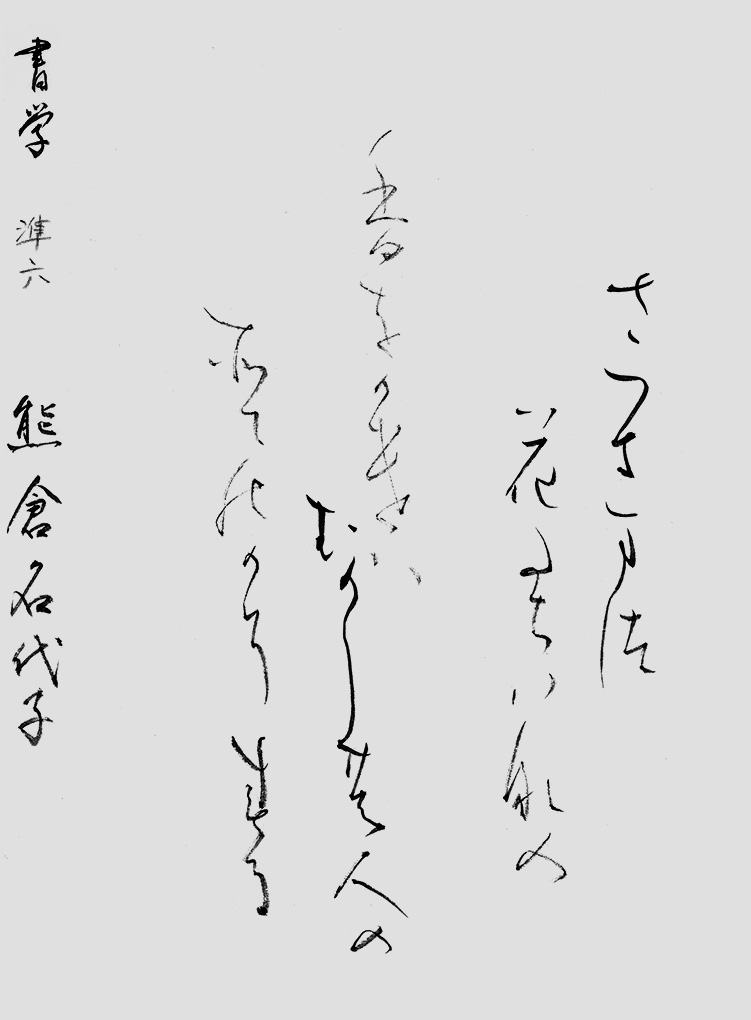 さつきまつ
花たちばなの
香をかけは
むかしの人の
そてのかそする
書学 準六 熊倉名代子